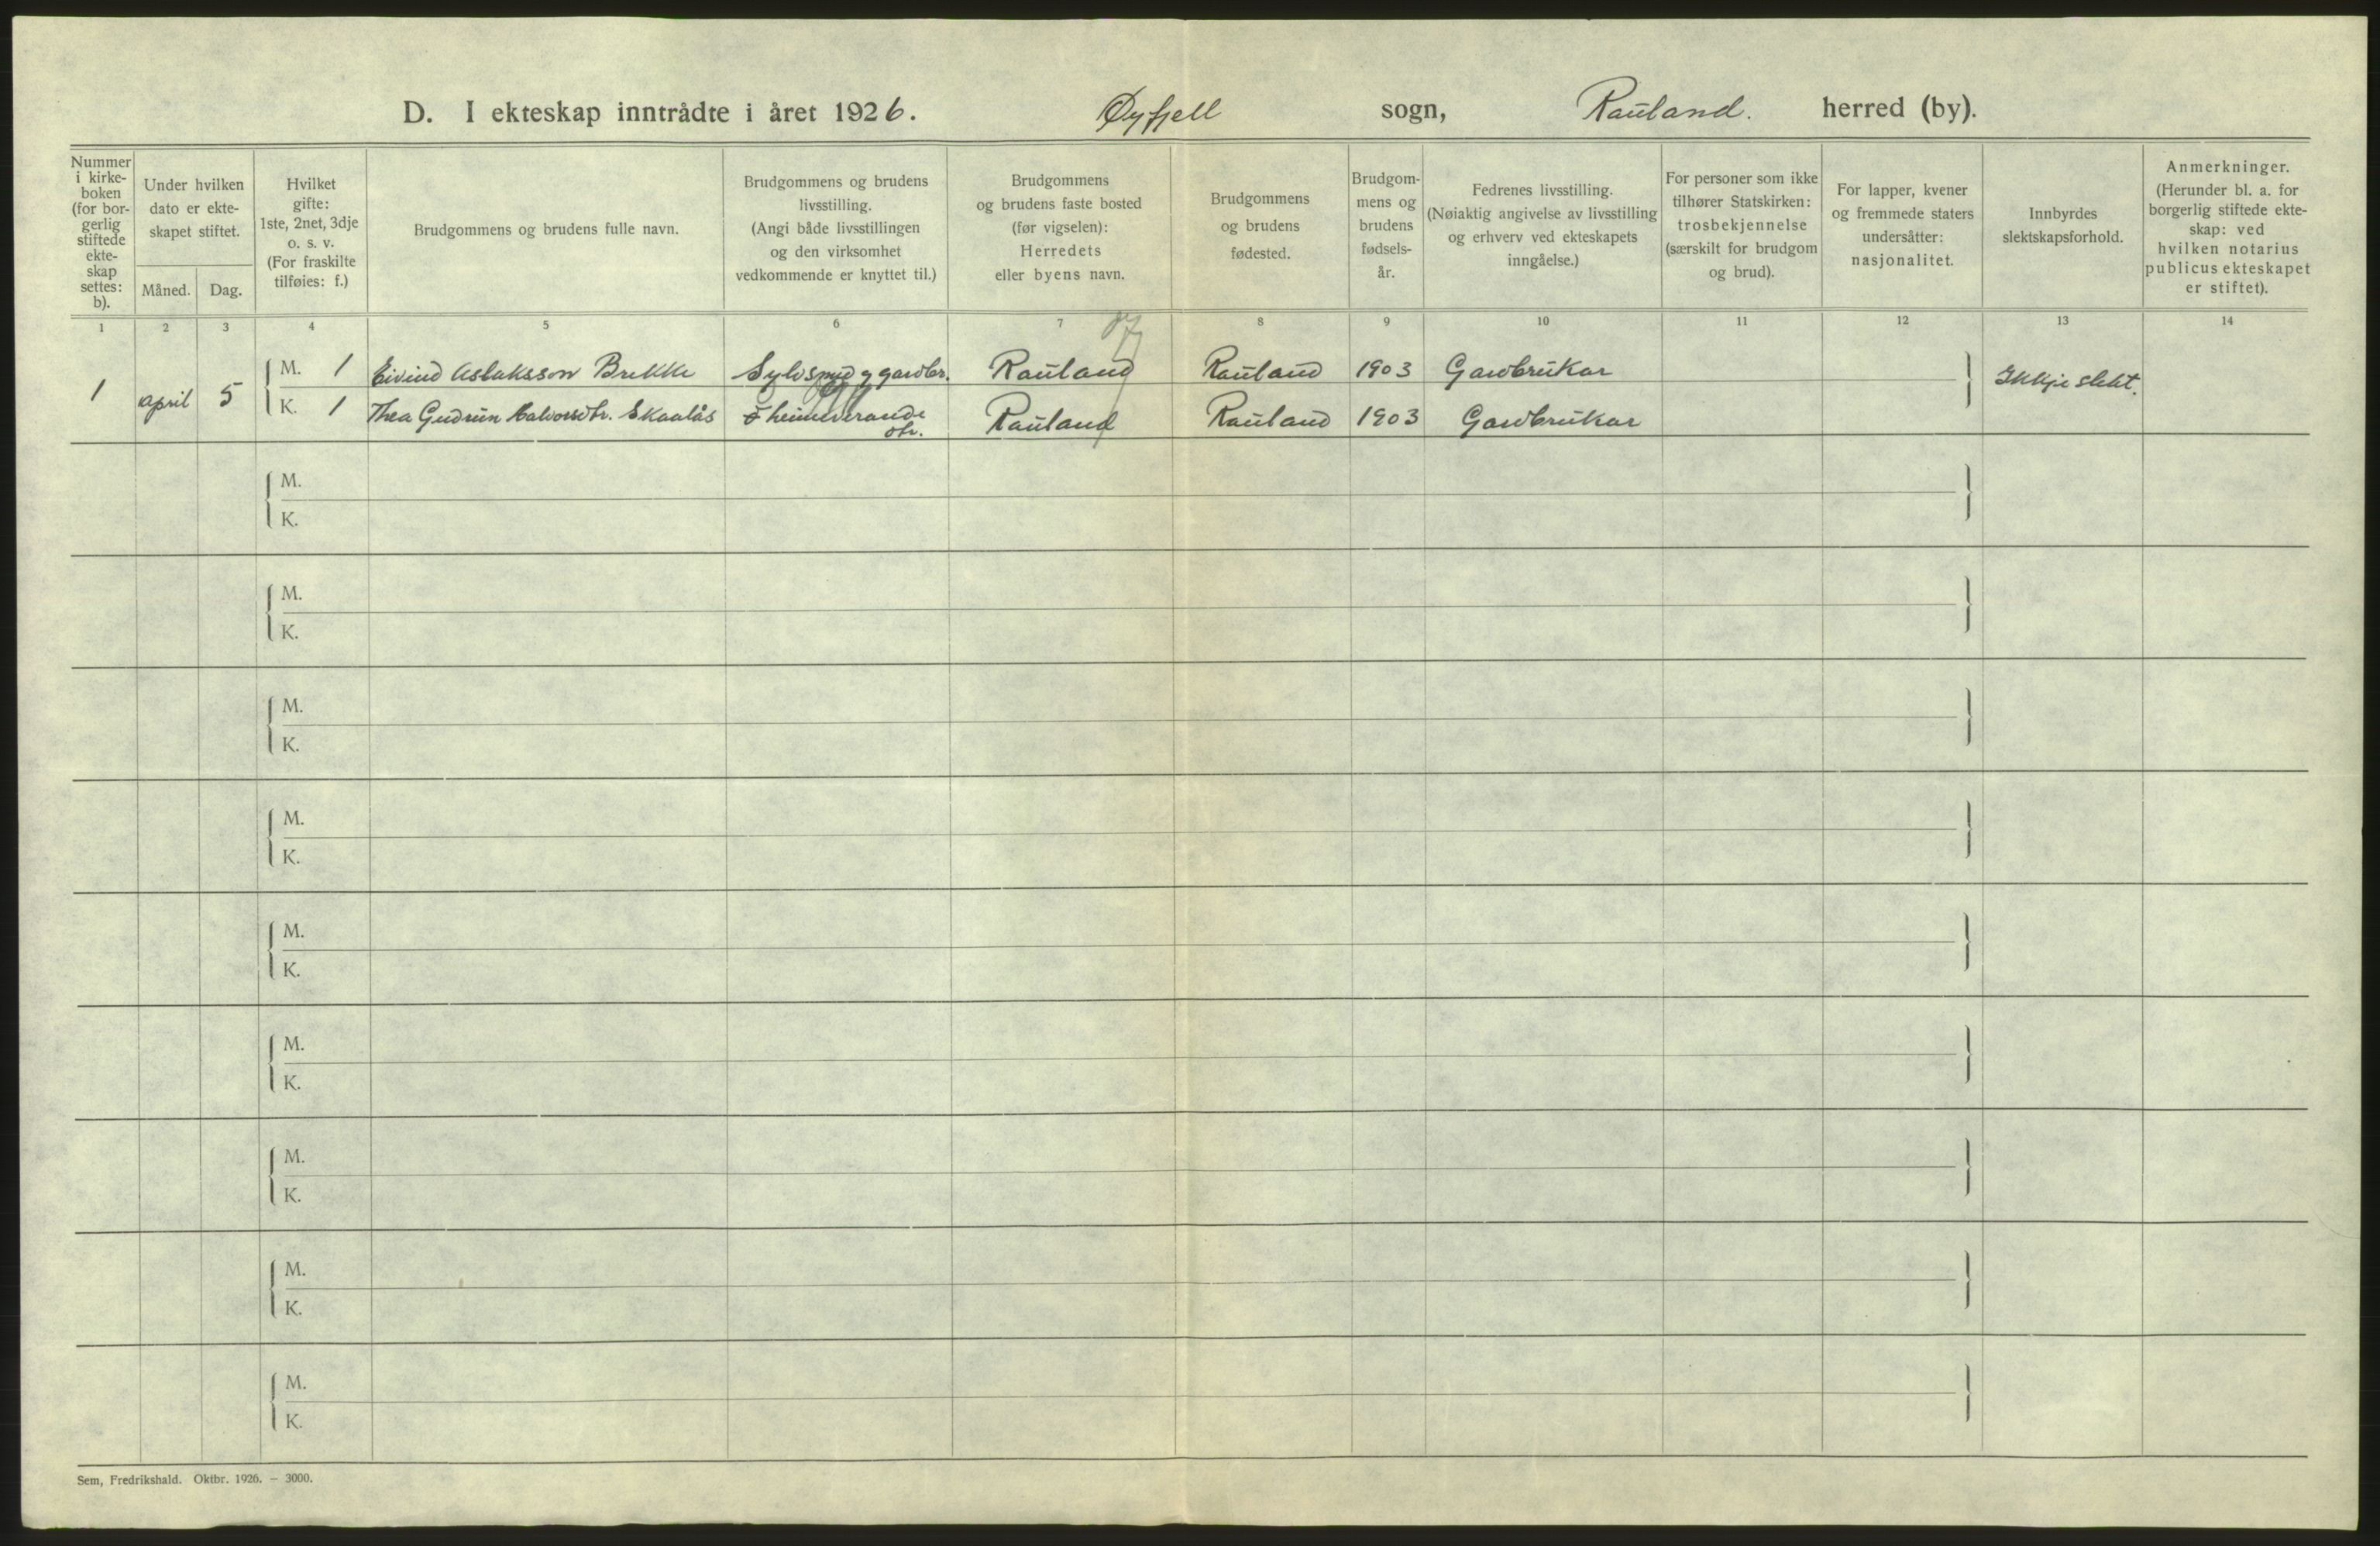 D. I ekteskap inntrådte i året 1926. Øyfjell sogn, Rauland. herred (by).
Nummer
i kirke-
boken
(for bor-
gerlig
stiftede
ekte-
skap
settes:
b).
Under hvilken
dato er ekte-
skapet stiftet.
Måned.
Dag.
Hvilket
gifte:
1ste, 2net, 3dje
o. s. v.
(For fraskilte
tilføies: f.)
Brudgommens og brudens fulle navn.
Brudgommens og brudens
livsstilling.
(Angi både livsstillingen
og den virksomhet
vedkommende er knyttet til.)
Brudgommens
og brudens faste bosted
(før vigselen):
Herredets
eller byens navn.
Brudgommens
og brudens
fødested.
Brudgom-
mens og
brudens
fødsels-
år.
Fedrenes livsstilling.
(Nøiaktig angivelse av livsstilling
og erhverv ved ekteskapets
inngåelse.)
For personer som ikke
tilhører Statskirken:
trosbekjennelse
(særskilt for brudgom
og brud).
For lapper, kvener
og fremmede staters
undersåtter:
nasjonalitet.
Innbyrdes
slektskapsforhold.
Anmerkninger.
(Herunder bl. a. for
borgerlig stiftede ekte-
skap: ved
hvilken notarius
publicus ekteskapet
er stiftet).
1 2 3 4 5 6 7 8 9 10 11 12 13 14
1 april 5 M. 1 Eivind Aslaksson Brekke Sylvsmed og gardbr. Rauland Rauland 1903 Gardbrukar Ikkje slekt.
K. 1 Thea Gudrun Halvorsdtr. Skaalås heimeverande Rauland Rauland 1903 Gardbrukar
dtr.
M.
K.
M.
K.
M.
K.
M.
K.
M.
K.
M.
K.
M.
K.
M.
K.
M.
K.
Sem, Fredrikshald. Oktbr. 1926. – 3000.